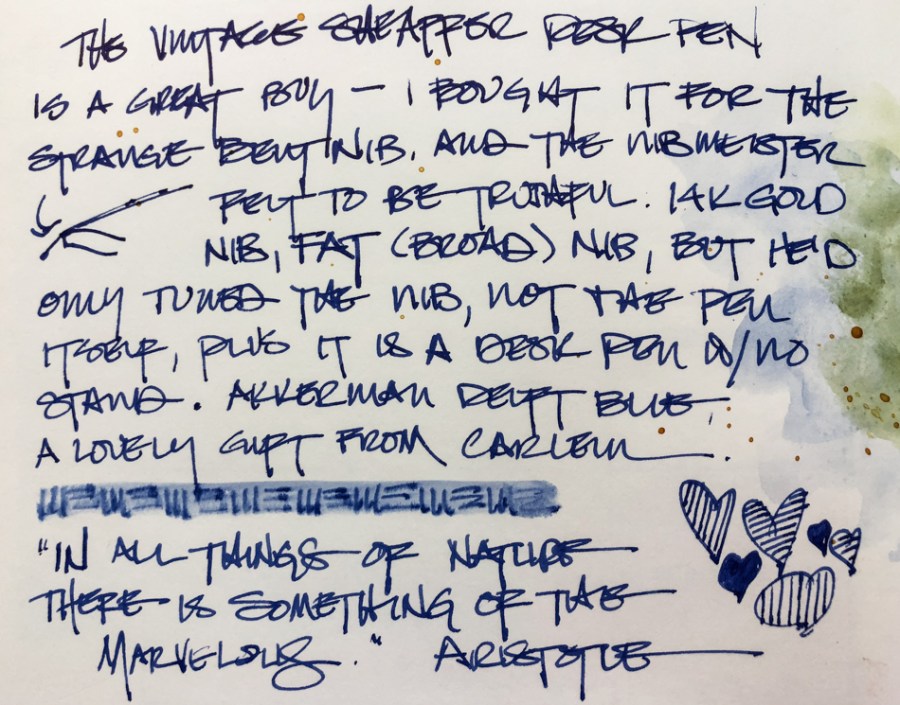 THE VINTAGE SHEAFFER DESK PEN
IS A GREAT BUY – I BOUGHT IT FOR THE
STRANGE BENT NIB, AND THE NIBMEISTER
FELT TO BE TRUTHFUL. 14K GOLD
NIB, FAT (BROAD) NIB, BUT HE'D
ONLY TUNED THE NIB, NOT THE PEN
ITSELF, PLUS IT IS A DESK PEN W/NO
STAND. AKKERMAN DELFT BLUE,
A LOVELY GIFT FROM CARLEEN.
"IN ALL THINGS OF NATURE
THERE IS SOMETHING OF THE
MARVELOUS." ARISTOTLE